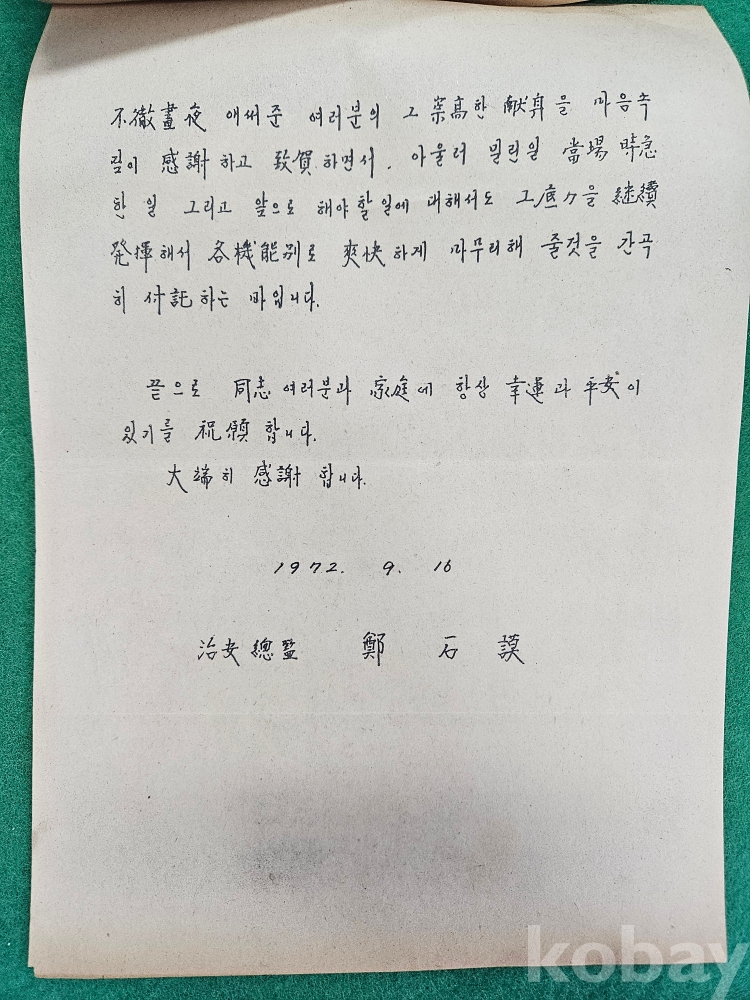 不徹晝夜 애써준 여러분의 그 崇高한 献身을 마음속
깊이 感謝하고 致賀하면서, 아울러 밀린일 當場 時急
한 일 그리고 앞으로 해야할일에 대해서도 그 底力을 継續
発揮해서 各機能別로 爽快하게 마무리해 줄것을 간곡
히 付託하는 바입니다.
끝으로 同志 여러분과 家庭에 항상 幸運과 平安이
있기를 祝願합니다.
大端히 感謝 합니다.
1972. 9. 16
治安總監 鄭 石 謨
kobay